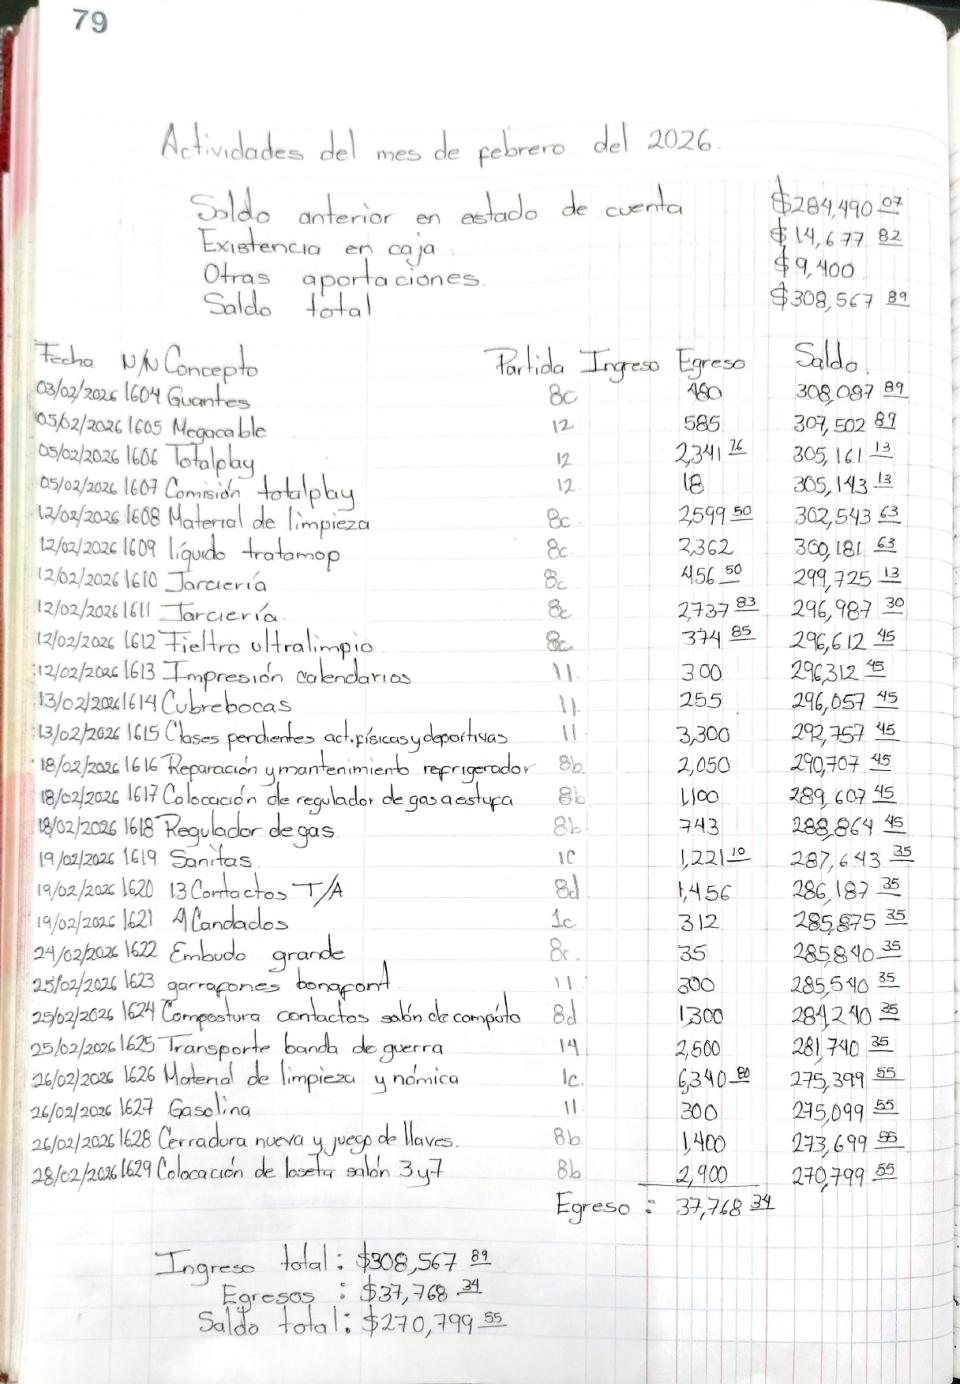 79
Actividades del mes de febrero del 2026.
Saldo anterior en estado de cuenta $284,490 07
Existencia en caja. $14,677 82
Otras aportaciones. $9,400
Saldo total $308,567 89
Fecha N/N Concepto Partida Ingreso Egreso Saldo.
03/02/2026 1604 Guantes 8c 480 308,087 89
05/02/2026 1605 Megacable 12 585 307,502 89
05/02/2026 1606 Totalplay 12 2,341 76 305,161 13
05/02/2026 1607 Comisión totalplay 12. 18 305,143 13
12/02/2026 1608 Material de limpieza 8c 2,599 50 302,543 63
12/02/2026 1609 líquido tratamop 8c 2,362 300,181 63
12/02/2026 1610 Jarciería 8c 456 50 299,725 13
12/02/2026 1611 Jarciería. 8c 2737 83 296,987 30
12/02/2026 1612 Fieltro ultralimpio 8c 374 85 296,612 45
12/02/2026 1613 Impresión calendarios 11. 300 296,312 45
13/02/2026 1614 Cubrebocas 11. 255 296,057 45
13/02/2026 1615 Clases pendientes act.físicas y deportivas 11 3,300 292,757 45
18/02/2026 1616 Reparación y mantenimiento refrigerador 8b. 2,050 290,707 45
18/02/2026 1617 Colocación de regulador de gas a estufa 8b 1,100 289,607 45
18/02/2026 1618 Regulador de gas. 8b 743 288,864 45
19/02/2026 1619 Sanitas. 1c 1,221 10 287,643 35
19/02/2026 1620 13 Contactos T/A 8d 1,456 286,187 35
19/02/2026 1621 4 Candados 1c 312 285,875 35
24/02/2026 1622 Embudo grande 8c. 35 285,840 35
25/02/2026 1623 garrafones bonafont. 11 300 285,540 35
25/02/2026 1624 Compostura contactos salón de compúto 8d 1,300 284,240 35
25/02/2026 1625 Transporte banda de guerra 14 2,500 281,740 35
26/02/2026 1626 Material de limpieza y nómica 1c. 6,340 80 275,399 55
26/02/2026 1627 Gasolina 11 300 275,099 55
26/02/2026 1628 Cerradura nueva y juego de llaves. 8b 1,400 273,699 55
28/02/2026 1629 Colocación de loseta salón 3 y 7 8b 2,900 270,799 55
Egreso : 37,768 34
Ingreso total : $308,567 89
Egresos : $37,768 34
Saldo total : $270,799 55